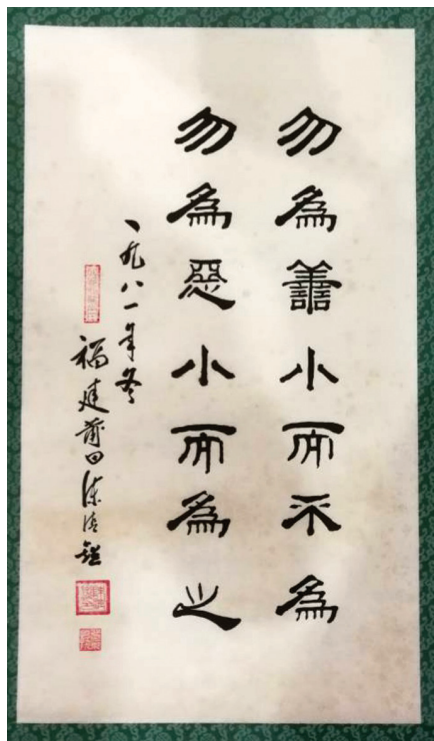 勿為善小而不為
勿為惡小而為之
一九八一年冬
福建莆田陳清